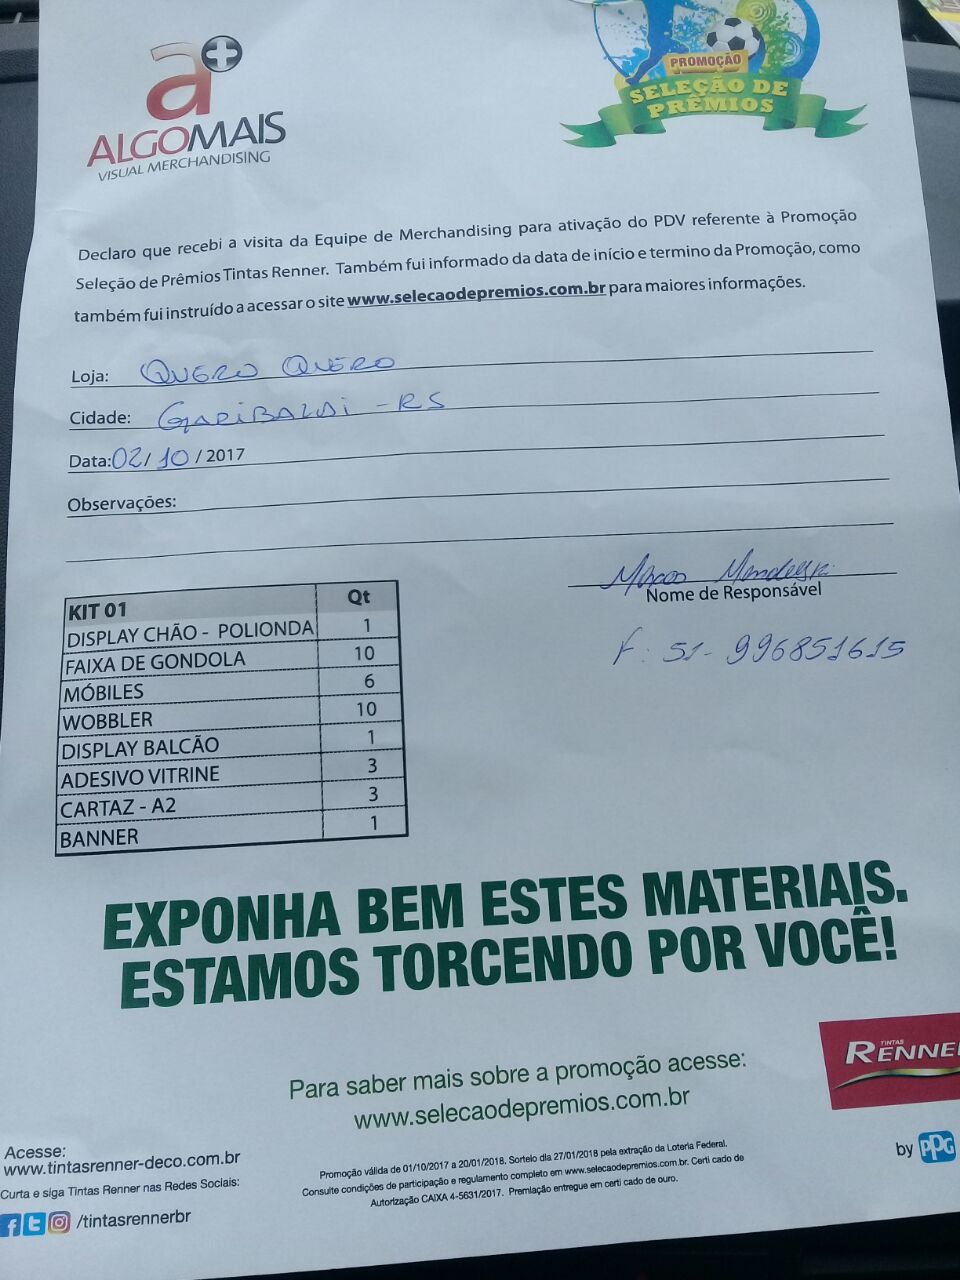 a+
ALGOMAIS
VISUAL MERCHANDISING
PROMOÇÃO
SELEÇÃO DE
PRÊMIOS
Declaro que recebi a visita da Equipe de Merchandising para ativação do PDV referente à Promoção
Seleção de Prêmios Tintas Renner. Também fui informado da data de início e termino da Promoção, como
também fui instruído a acessar o site www.selecaodepremios.com.br para maiores informações.
Loja: QUERO QUERO
Cidade: GARIBALDI - RS
Data: 02/ 10 / 2017
Observações:
Nome de Responsável
F: 51- 996851615
KIT 01 Qt
DISPLAY CHÃO - POLIONDA 1
FAIXA DE GONDOLA 10
MÓBILES 6
WOBBLER 10
DISPLAY BALCÃO 1
ADESIVO VITRINE 3
CARTAZ - A2 3
BANNER 1
EXPONHA BEM ESTES MATERIAIS.
ESTAMOS TORCENDO POR VOCÊ!
TINTAS
RENNE
Para saber mais sobre a promoção acesse:
www.selecaodepremios.com.br
by PPG
Acesse:
www.tintasrenner-deco.com.br
Curta e siga Tintas Renner nas Redes Sociais:
/tintasrennerbr
Promoção válida de 01/10/2017 a 20/01/2018. Sorteio dia 27/01/2018 pela extração da Loteria Federal.
Consulte condições de participação e regulamento completo em www.selecaodepremios.com.br. Certi cado de
Autorização CAIXA 4-5631/2017. Premiação entregue em certi cado de ouro.